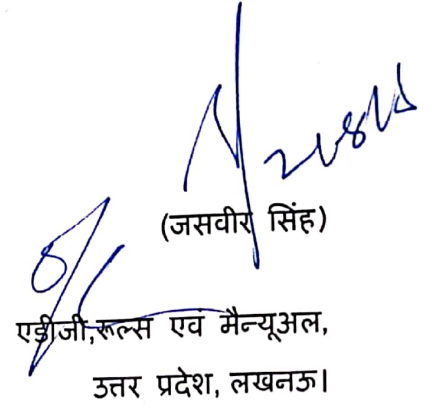 (जसवीर सिंह)
एडीजी,रूल्स एवं मैन्यूअल,
उत्तर प्रदेश, लखनऊ।